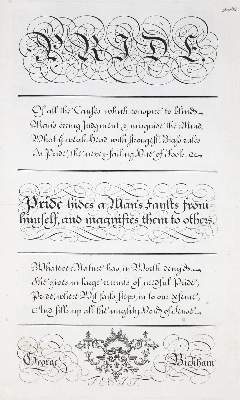 PRIDE.
Of all the Causes which conspire to blind
Man's erring Judgment, & misguide the Mind,
What the weak Head with strongest Biass rules
Is Pride, the never-failing Vice of Fools.
Pride hides a Man's Faults from
himself, and magnifies them to others.
Whatever Nature has in Worth deny'd
She gives in large recruits of needful Pride;
Pride, where Wit fails, steps in to our defence,
And fills up all the mighty Void of Sense.
George Bickham